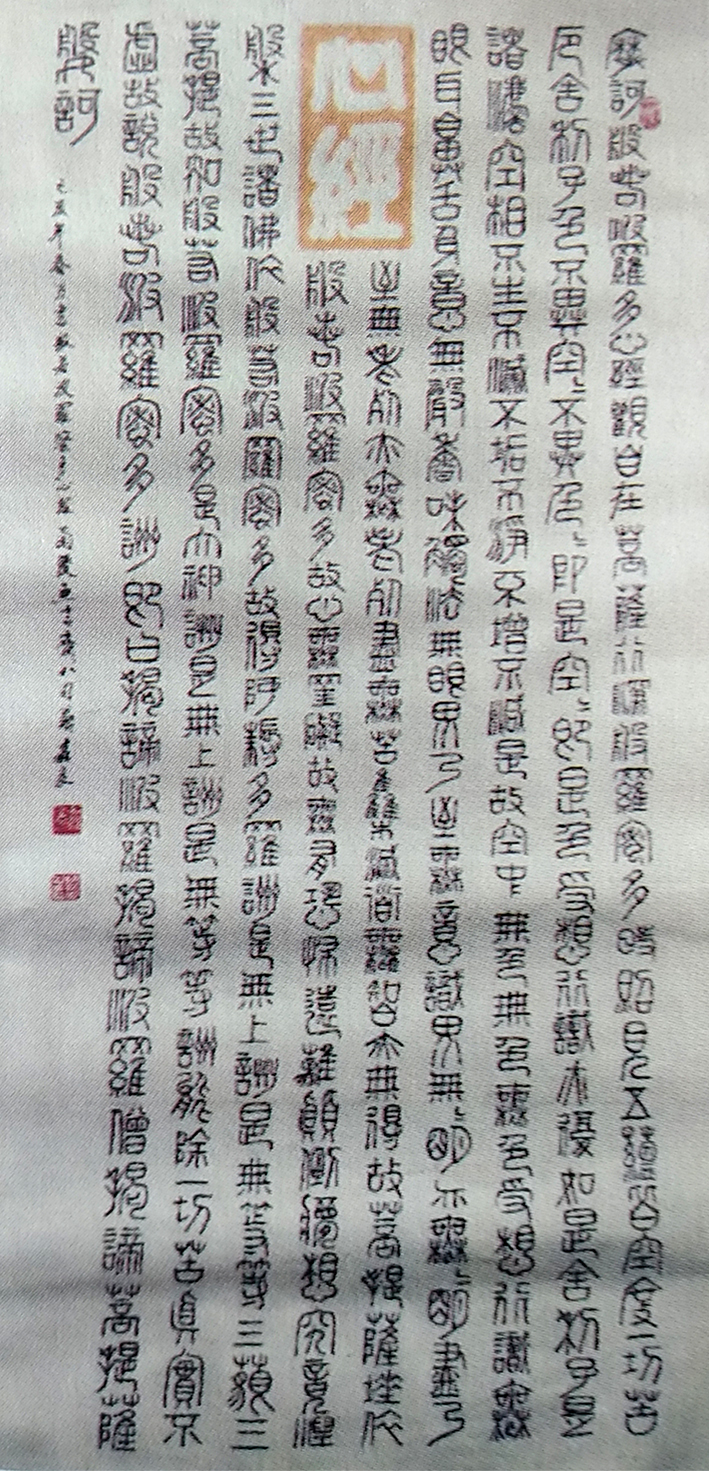 摩訶般若波羅多心經觀自在菩薩行深般羅蜜多時照見五蘊皆空度一切苦
厄舍利子色不異空〻不異色〻即是空〻即是色受想行識亦復如是舍利子是
諸法空相不生不滅不垢不淨不增不減是故空中無色無色無色受想行識無
眼耳鼻舌身意無聲香味觸法無眼界乃至無意識界無〻明亦無〻明盡乃
心經
至無老死亦無老死盡無苦集滅道無智亦無得故菩提薩埵依
般若波羅蜜多故心無罣礙故無有恐怖遠離顛倒夢想究竟涅
槃三世諸佛依般若波羅蜜多故得阿耨多羅詶是無上詶是無等等三藐三
菩提故知般若波羅蜜多是大神詶是無上詶是無等等詶能除一切苦真實不
虛故說般若波羅蜜多詶即曰揭諦波羅揭諦波羅僧揭諦菩提薩
般訶
己亥年春月書般若波羅蜜多心經